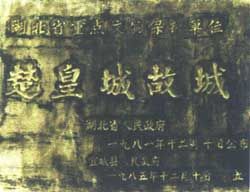 湖北省重点文物保护单位
楚皇城故城
湖北省人民政府
一九八一年十二月 十日公布
宜城县人民政府
一九八五年十二月十 日 立